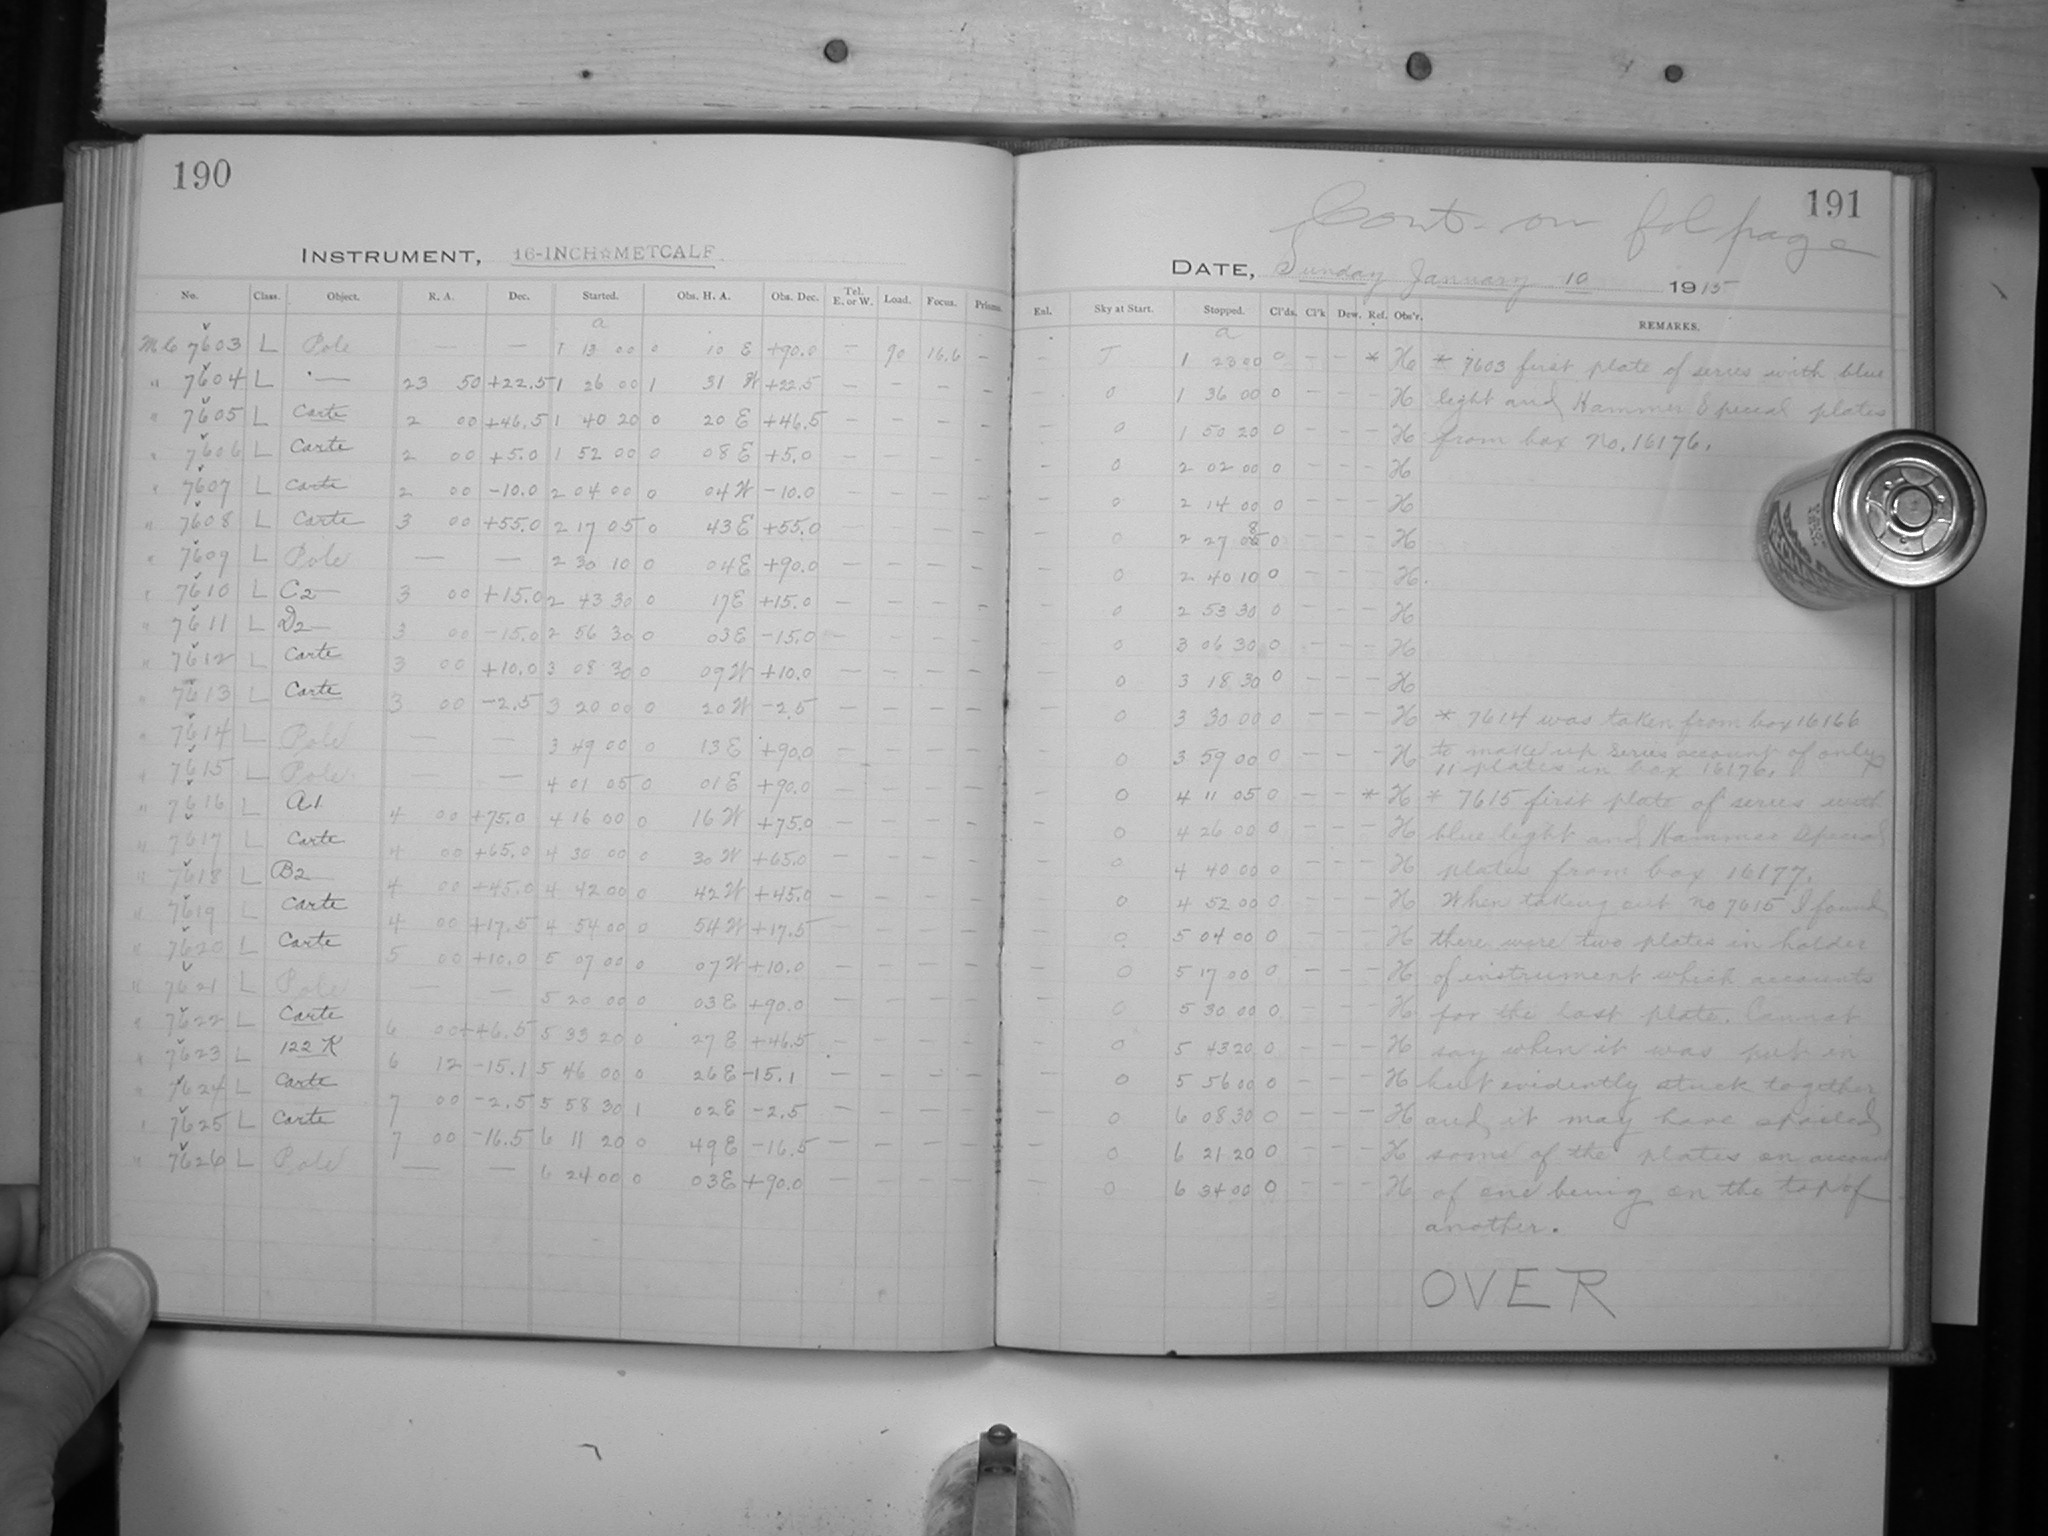 190
INSTRUMENT, 16-INCH☆METCALF
No. Class. Object. R. A. Dec. Started. Obs. H. A. Obs. Dec. Tel. E. or W. Load. Focus. Prisms.
a
MC 7603 L Pole — — 1 13 00 0 10 E +90.0 — 90 16.6 —
" 7604 L — 23 50 +22.5 1 26 00 1 31 W +22.5 — — — —
" 7605 L Carte 2 00 +46.5 1 40 20 0 20 E +46.5 — — — —
" 7606 L Carte 2 00 +5.0 1 52 00 0 08 E +5.0 — — — —
" 7607 L Carte 2 00 -10.0 2 04 00 0 04 W -10.0 — — — —
" 7608 L Carte 3 00 +55.0 2 17 05 0 43 E +55.0 — — — —
" 7609 L Pole — — 2 30 10 0 04 E +90.0 — — — —
" 7610 L C2 — 3 00 +15.0 2 43 30 0 17 E +15.0 — — — —
" 7611 L D2 — 3 00 -15.0 2 56 30 0 03 E -15.0 — — — —
" 7612 L Carte 3 00 +10.0 3 08 30 0 09 W +10.0 — — — —
" 7613 L Carte 3 00 -2.5 3 20 00 0 20 W -2.5 — — — —
" 7614 L Pole — — 3 49 00 0 13 E +90.0 — — — —
" 7615 L Pole — — 4 01 05 0 01 E +90.0 — — — —
" 7616 L A1 4 00 +75.0 4 16 00 0 16 W +75.0 — — — —
" 7617 L Carte 4 00 +65.0 4 30 00 0 30 W +65.0 — — — —
" 7618 L B2 — 4 00 +45.0 4 42 00 0 42 W +45.0 — — — —
" 7619 L Carte 4 00 +17.5 4 54 00 0 54 W +17.5 — — — —
" 7620 L Carte 5 00 +10.0 5 07 00 0 07 W +10.0 — — — —
" 7621 L Pole — — 5 20 00 0 03 E +90.0 — — — —
" 7622 L Carte 6 00 +46.5 5 33 20 0 27 E +46.5 — — — —
" 7623 L 122 K 6 12 -15.1 5 46 00 0 26 E -15.1 — — — —
" 7624 L Carte 7 00 -2.5 5 58 30 1 02 E -2.5 — — — —
" 7625 L Carte 7 00 -16.5 6 11 20 0 49 E -16.5 — — — —
" 7626 L Pole — — 6 24 00 0 03 E +90.0 — — — —
191
Cont- on fol page
DATE, Sunday January 10 1915
Enl. Sky at Start. Stopped. Cl'ds. Cl'k Dew. Ref. Obs'r. REMARKS.
a
— 1 23 00 0 — — * H * 7603 first plate of series with blue
— 0 1 36 00 0 — — — H light and Hammer Special plates
— 0 1 50 20 0 — — — H from box No. 16176.
— 0 2 02 00 0 — — — H
— 0 2 14 00 0 — — — H
— 0 2 27 0 — — — H
— 0 2 40 10 0 — — — H.
— 0 2 53 30 0 — — — H
— 0 3 06 30 0 — — — H
— 0 3 18 30 0 — — — H
— 0 3 30 00 0 — — — H * 7614 was taken from box 16166
— 0 3 59 00 0 — — — H to make up series account of only
11 plates in box 16176.
— 0 4 11 05 0 — — * H * 7615 first plate of series with
— 0 4 26 00 0 — — — H blue light and Hammer Special
— 0 4 40 00 0 — — — H plates from box 16177.
— 0 4 52 00 0 — — — H When taking out No 7615 I found
— 0 5 04 00 0 — — — H there were two plates in holder
— 0 5 17 00 0 — — — H of instrument which accounts
— 0 5 30 00 0 — — — H for the last plate. Cannot
— 0 5 43 20 0 — — — H say when it was put in
— 0 5 56 00 0 — — — H but evidently stuck together
— 0 6 08 30 0 — — — H and it may have spoiled
— 0 6 21 20 0 — — — H some of the plates on account
— 0 6 34 00 0 — — — H of one being on the top of
another.
OVER